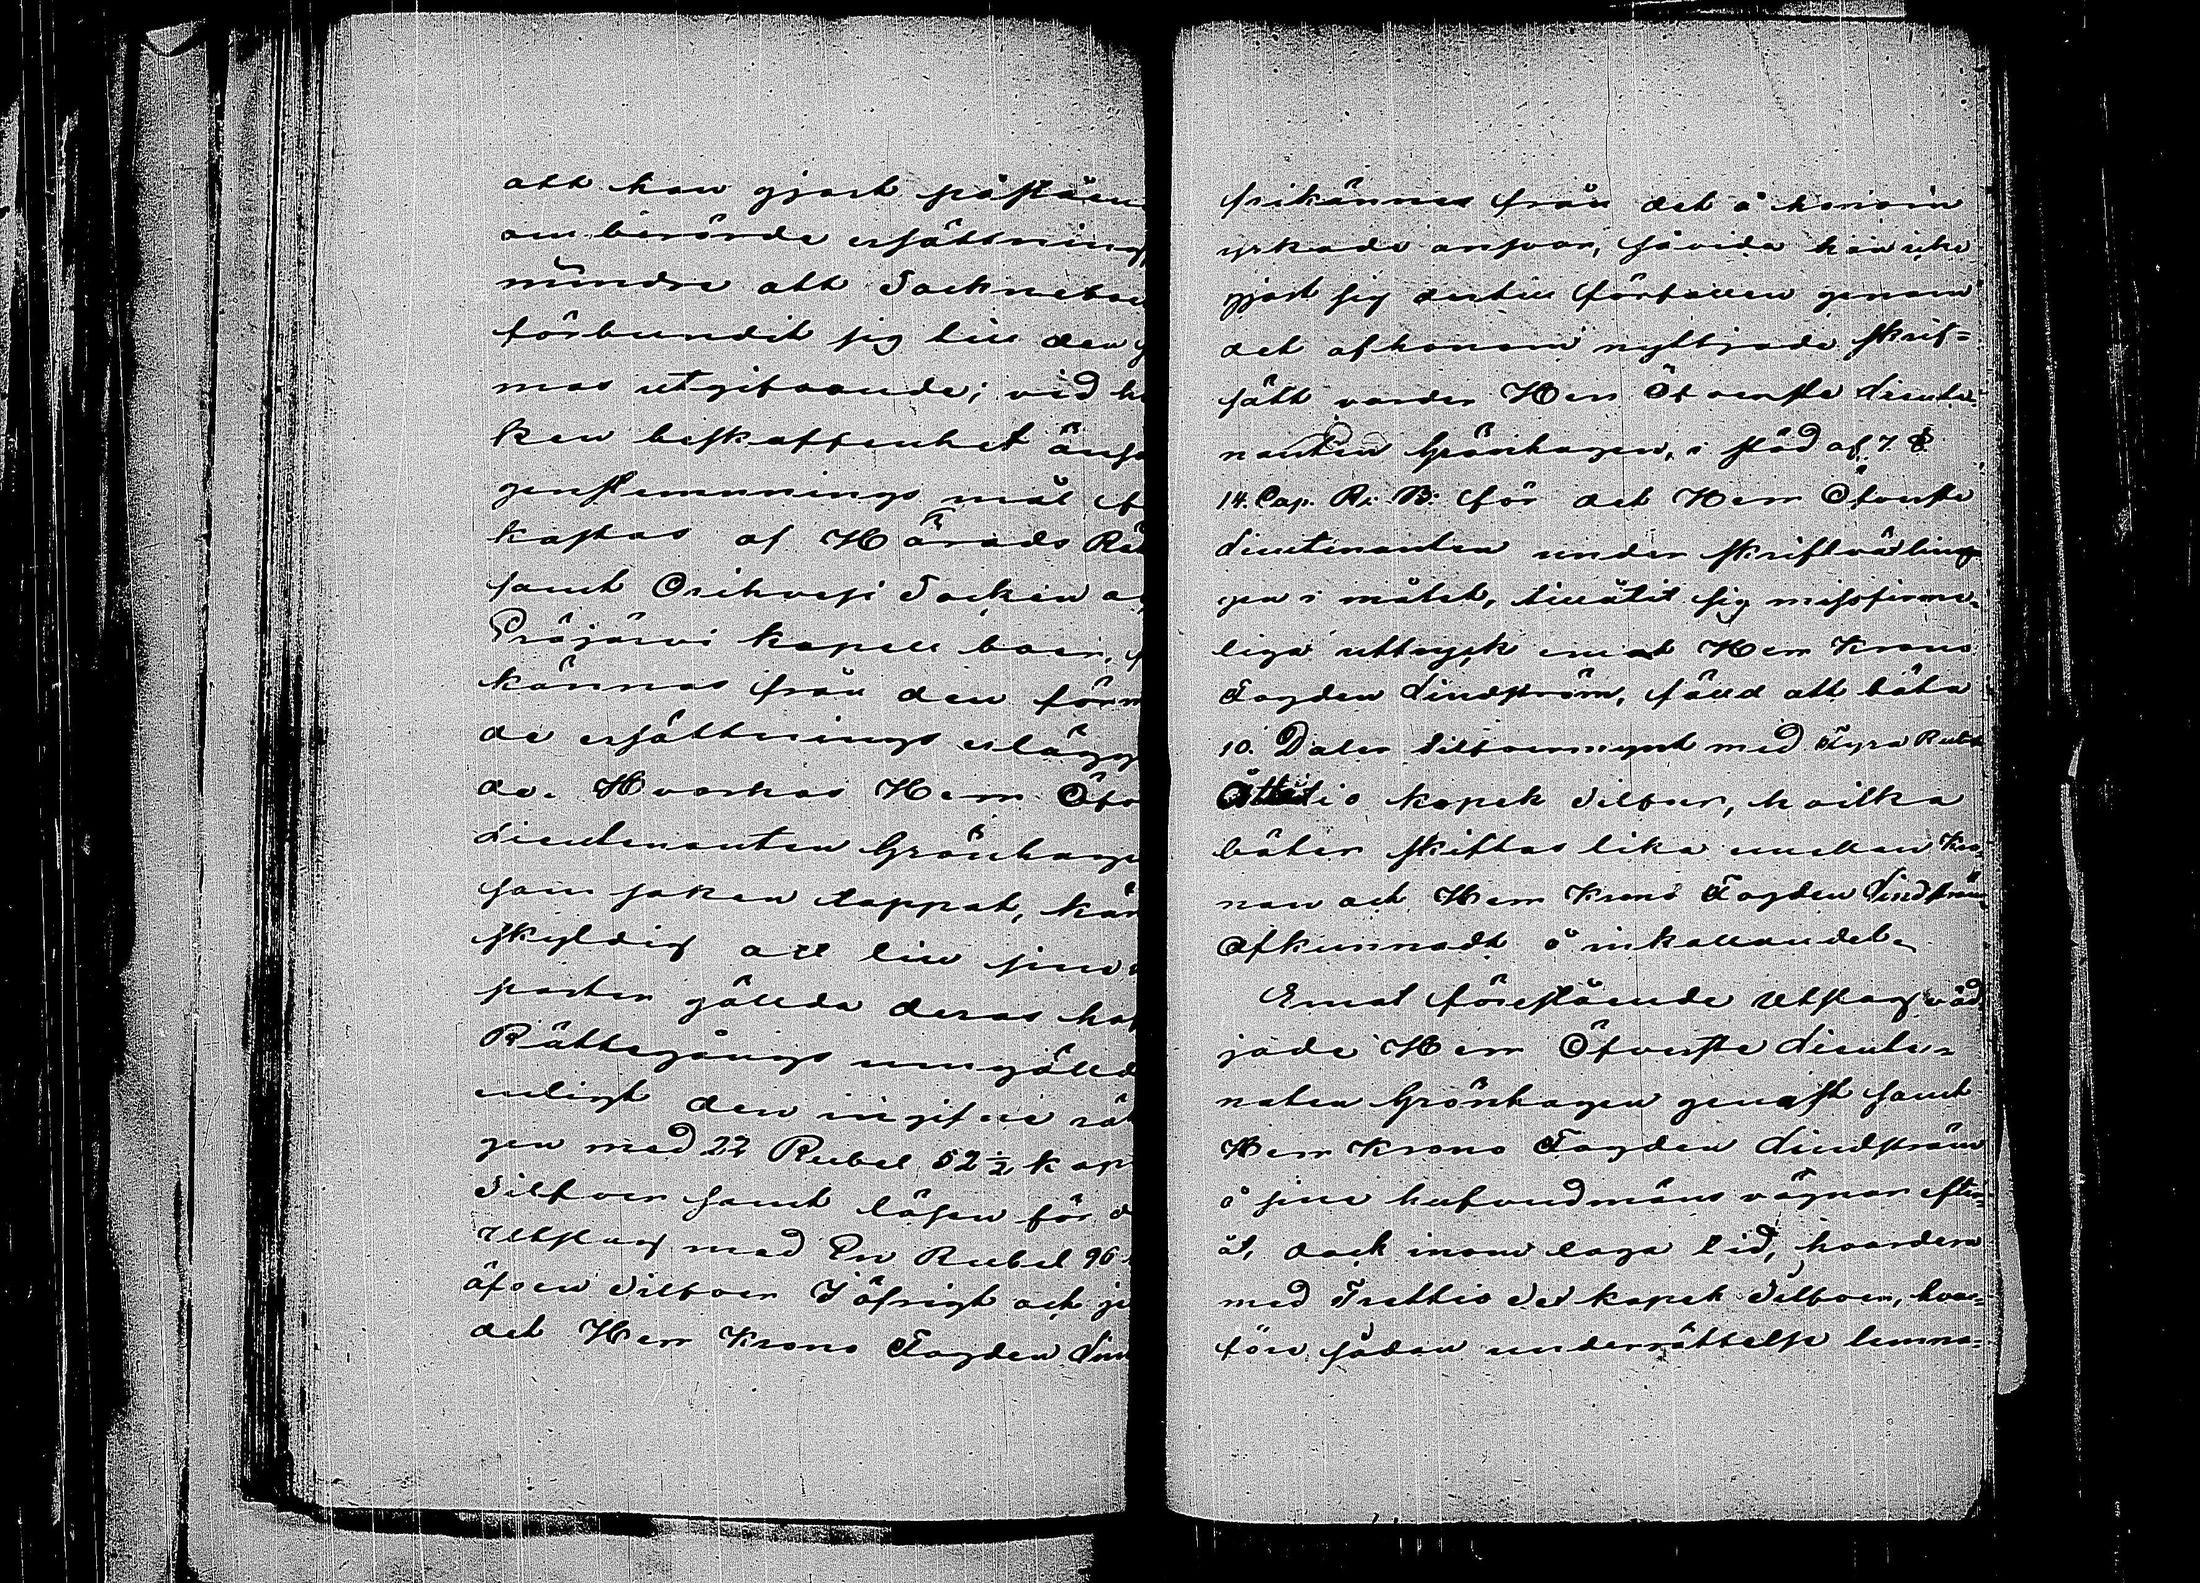 att han gjort påståen
om berörde ersättning,
mindre att Sockneboe
förbundit sig till den
mas utgifvande; vid h
ken beskaffenhet ansö
genstemnings mål
kastas af Härads Rä
samt Orihvesi Socken
Eräjärvi kapell boer,
kännas från den förm
de ersättnings erlägg
de. Hvarhos Herr Öfv
Lieutenanten Grönhage
som saken tappat, kän
skyldig att till sina
parter gällda deras ha
Rättegångs umgälld
enligt den ingifne rä
gen med 22 Rubel 52½ kop
Silfver samt lösen för
Utslag med En Rubel 96
äfven Silfver I öfrigt och
det Herr Krono Fogden Lin
frikännes från det å honom
yrkade ansvar, såvida han icke
gjort sig dertill förfallen genom
det af honom nyttjade skrif-
sätt varder Herr Öfverste Lieute-
nanten Grönhagen, i stöd af 7. §
14. Cap. R. B. för det Herr Öfverste
Lieutenanten under skriftvexlin-
gen i målet, tillåtit sig missfirme-
liga uttryck emot Herr Krono
Fogden Lindström, fälld att böta
10. Daler Silfvermynt med Fyra Rubel
Åttatio kopek Silfver, hvilka
böter skiftas lika mellan Kro-
nan och Herr Krono Fogden Lindström
Afkunnadt å inkallandet.
Emot förestående Utslag väd
jade Herr Öfverste Lieute-
naten Grönhagen genast samt
Herr Krono Fogden Lindström
å sine hufvudmäns vägnar efter
åt, dock inom laga tid, hvardera
med Trettio Sex kopek Silfver, hvar-
före sådan underrättelse lemna-